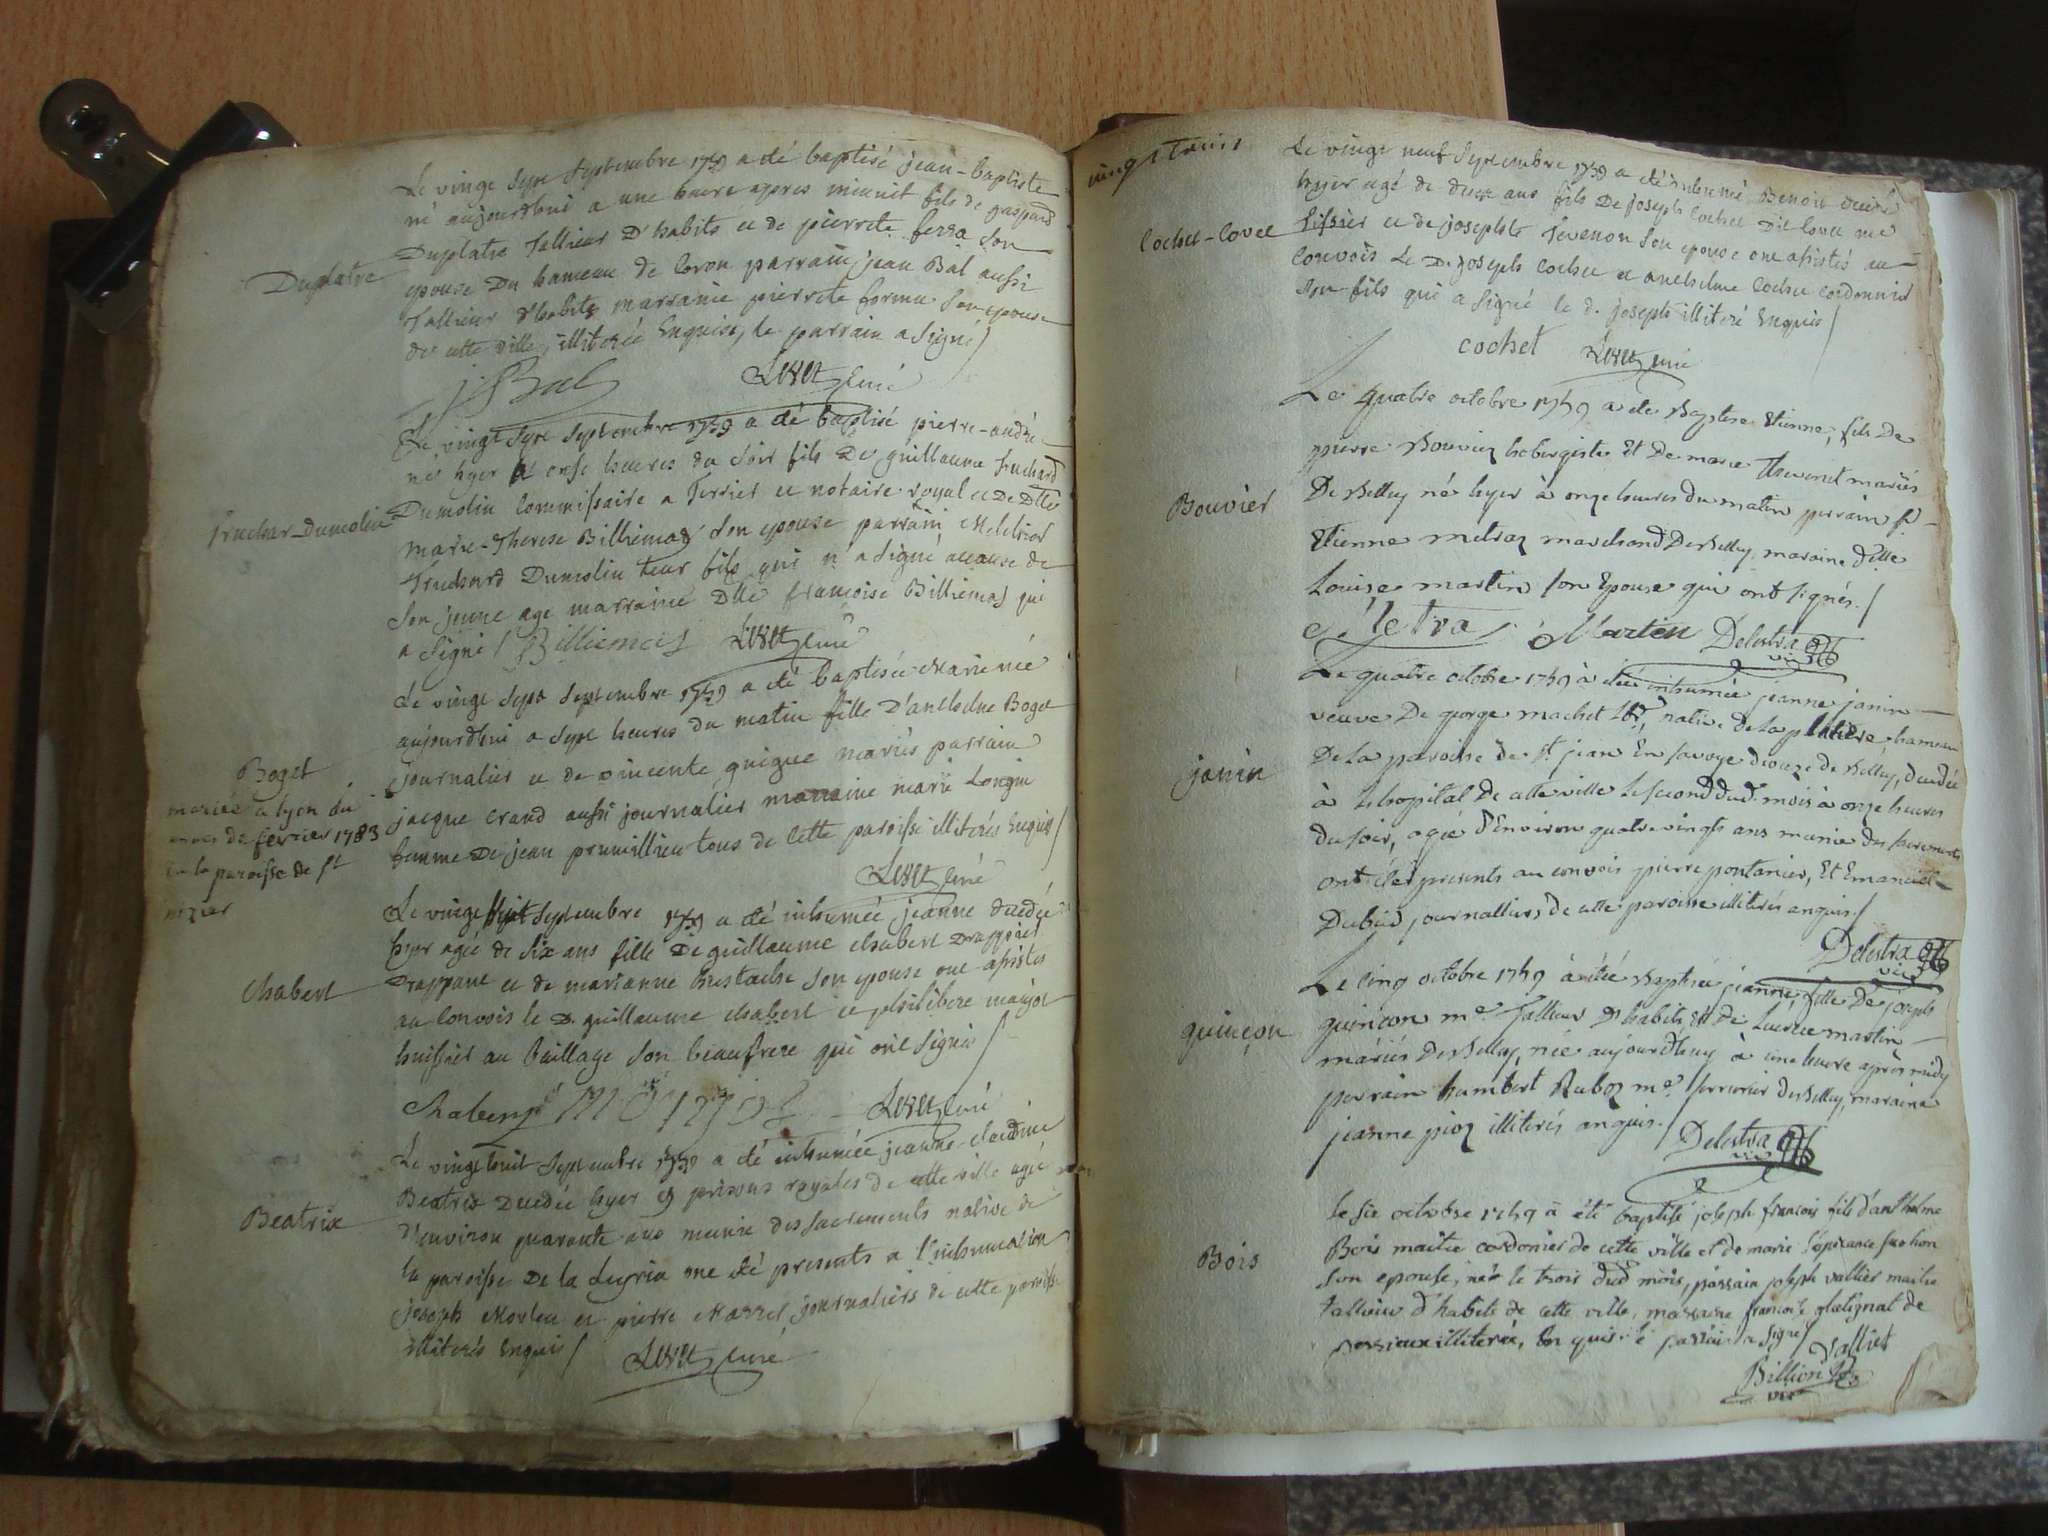 Le vingt sept septembre 1759 a été baptisé jean-baptiste
né aujourdhui a une heure apres minuit fils de gaspard
Duplatre Tallieur D'habits et de pierrete ferra son
Duplatre
epouse Du hameau de Coron parrain jean Bal aussi
Tallieur d'habits marraine pierrete son epouse
de cette ville, illiterée Enquise, le parrain a signé /
j Bal curé
Le vingt sept septembre 1759 a été baptisé pierre-andré
né hyer a onse heures du soir fils De guillaume Truchard
Dumolin Commissaire a Terrier et notaire royal et De Dlle
Truchar-Dumolin
marie-Therese Billiemaz son epouse parrain Melchior
Truchard Dumolin leur fils qui n'a signé acause de
son jeune age marraine Dlle francoise Billiemaz qui
a signé / Billiemaz curé
Le vingt sept septembre 1759 a été baptisée Marie née
aujourdhui a sept heures du matin fille D'anthelme Boget
journalier et de vincente guigue mariés parrain
Boget
mariée a lyon du
mois de fevrier 1783
la paroisse de st
nizier
jacque Crand aussi journalier marraine marie Longin
femme De jean prumillieu tous de cette paroisse illiterés Enquis /
curé
Le vingt huit septembre 1759 a été inhumée jeanne decedée
hyer agée de six ans fille De guillaume chabert Drappier
Chabert
Drappant et de marianne Eustache son epouse ont assistés
au Convois le D. guillaume chabert et philibert
huissier au bailliage son beaufrere qui ont signés /
Chabert curé
Le vingt huit septembre 1759 a été inhumée jeanne-claudine
Beatrix Decedée hyer es prisons royales de cette ville agée
Beatrix
d'environ quarante ans munie des sacrements native de
la paroisse De la ont été presents a l'inhumation
joseph et pierre journaliers de cette paroisse
illiterés Enquis / curé
vingt trois
Le vingt neuf septembre 1759 a été inhumé Benoit decedé
hyer agé de deux ans fils De joseph Cochet Dit Covet
Cochet-Covet
et de josephte Tevenon son epouse ont assistés au
Convois Le D. joseph cochet et anthelme Cochet Cordonnier
son fils qui a signé le d. joseph illiteré Enquis /
cochet curé
Le quatre octobre 1759 a été Baptisé Etienne, fils De
pierre Bouvier hebergiste Et De marie Thevenet mariés
Bouvier
De Belley né hyer à onze heures du matin parrain sr
Etienne metraz marchand De Belley maraine dlle
Louise martin son Epouse qui ont signés. /
Martin Delestra vic
Le quatre octobre 1759 à été inhumée jeanne janin
veuve De george machet native de la hameau
janin
De la paroisse de st jean En savoye dioceze de Belley, decedée
à L'hopital De cette ville Le second dud. mois à onze heures
du soir, agée D'Environ quatre vingts ans munie des sacrements
ont étés presents au convois pierre pontanier, Et Emanuel
Dubié, journalliers de cette paroisse illiterés anquis /
Delestra vic
Le cinq octobre 1759 à été Baptisée jeanne, fille De joseph
guincon
quincon me Tallieur D'habits Et de Lucrece martin
mariés De Belley, née aujourdhuy à une heure après midy
parrain humbert Ruboz me serrurier De Belley, maraine
jeanne pioz illiterés anquis. /
Delestra vic
le six octobre 1759 a été baptisé joseph francois fils d'anthelme
Bois
Bois maitre cordonier de cette ville et de marie Esperance
son epouse, né le trois dud mois, parrain joseph vallier maitre
tallieur d'habits de cette ville, marraine francoise de
illiterée, Enquise le parrain a signé / vallier
Billion vic